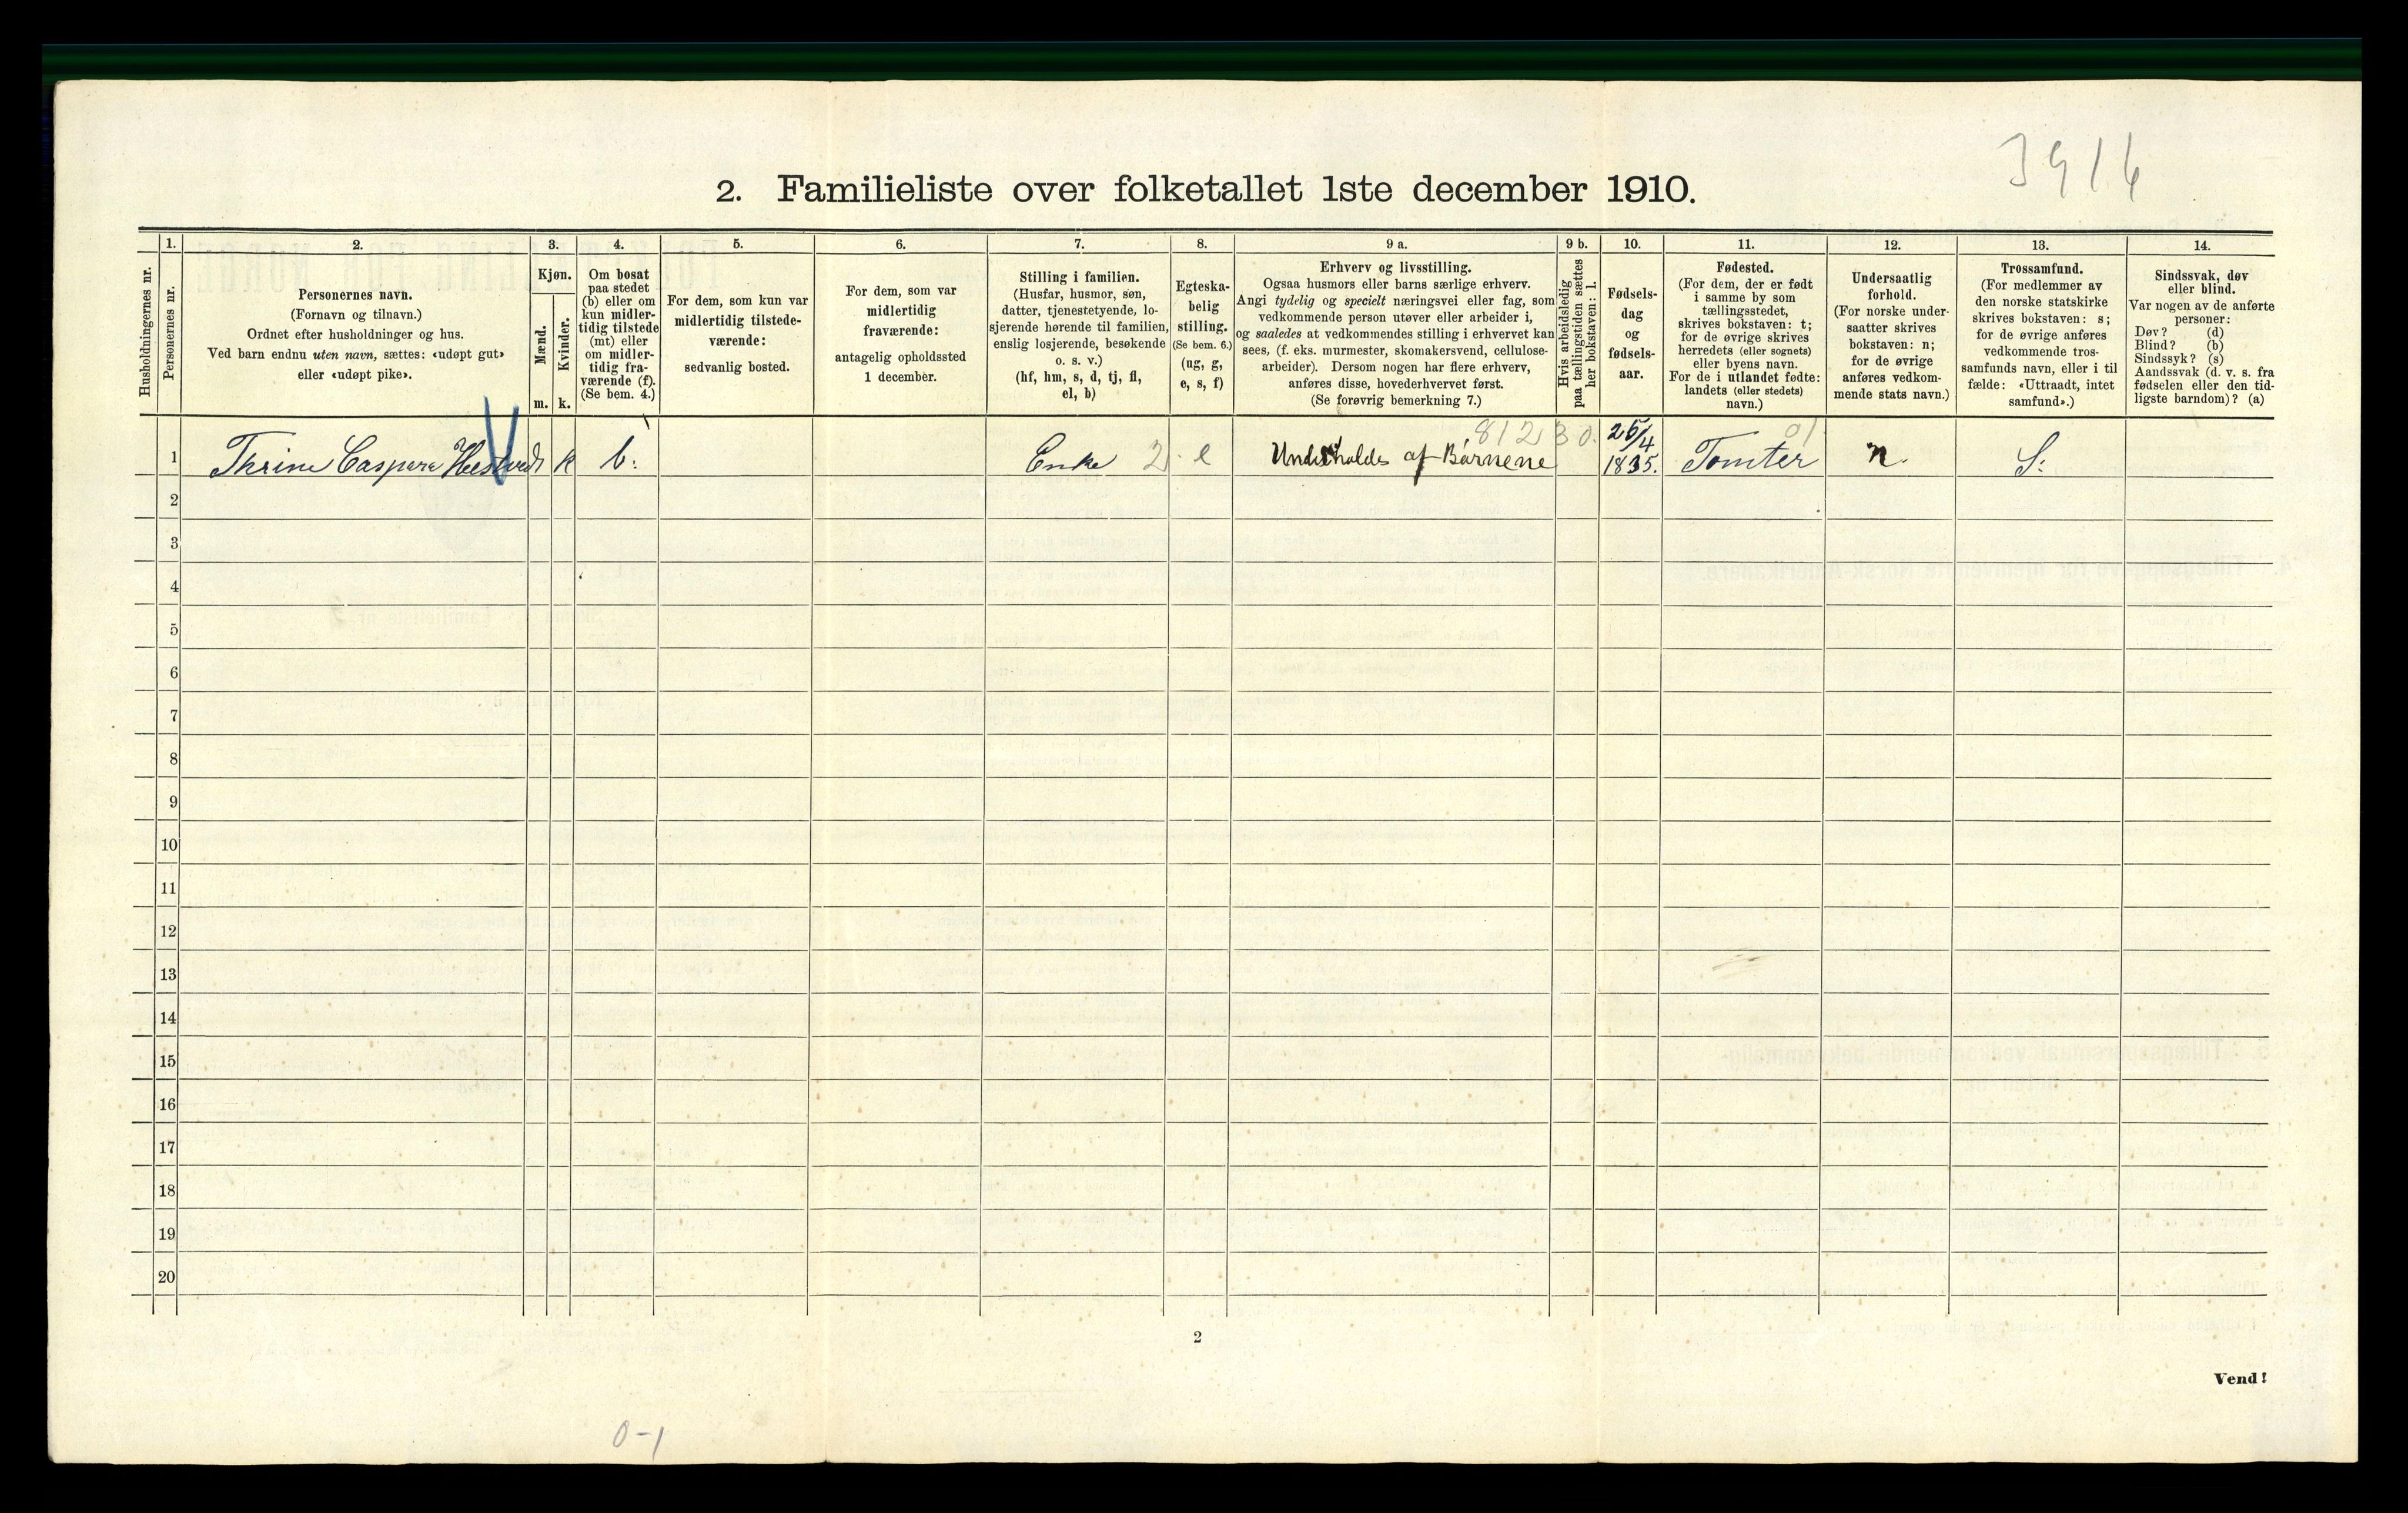 3916
2. Familieliste over folketallet 1ste december 1910.
Husholdningernes nr.
1.
Personernes nr.
2.
Personernes navn.
(Fornavn og tilnavn.)
Ordnet efter husholdninger og hus.
Ved barn endnu uten navn, sættes: «udøpt gut»
eller «udøpt pike».
3.
Kjøn.
Mænd.
Kvinder.
m. k.
4.
Om bosat
paa stedet
(b) eller om
kun midler-
tidig tilstede
(mt) eller
om midler-
tidig fra-
værende (f).
(Se bem. 4.)
5.
For dem, som kun var
midlertidig tilstede-
værende:
sedvanlig bosted.
6.
For dem, som var
midlertidig
fraværende:
antagelig opholdssted
1 december.
7.
Stilling i familien.
(Husfar, husmor, søn,
datter, tjenestetyende, lo-
sjerende hørende til familien,
enslig losjerende, besøkende
o. s. v.)
(hf, hm, s, d, tj, fl,
el, b)
8.
Egteska-
belig
stilling.
(Se bem. 6.)
(ug, g,
e, s, f)
9 a.
Erhverv og livsstilling.
Ogsaa husmors eller barns særlige erhverv.
Angi tydelig og specielt næringsvei eller fag, som
vedkommende person utøver eller arbeider i,
og saaledes at vedkommendes stilling i erhvervet kan
sees, (f. eks. murmester, skomakersvend, cellulose-
arbeider). Dersom nogen har flere erhverv,
anføres disse, hovederhvervet først.
(Se forøvrig bemerkning 7.)
9 b.
Hvis arbeidsledig
paa tællingstiden sættes
her bokstaven: l.
10.
Fødsels-
dag
og
fødsels-
aar.
11.
Fødested.
(For dem, der er født
i samme by som
tællingsstedet,
skrives bokstaven: t;
for de øvrige skrives
herredets (eller sognets)
eller byens navn.
For de i utlandet fødte:
landets (eller stedets)
navn.)
12.
Undersaatlig
forhold.
(For norske under-
saatter skrives
bokstaven: n;
for de øvrige
anføres vedkom-
mende stats navn.)
13.
Trossamfund.
(For medlemmer av
den norske statskirke
skrives bokstaven: s;
for de øvrige anføres
vedkommende tros-
samfunds navn, eller i til
fælde: «Uttraadt, intet
samfund».)
14.
Sindssvak, døv
eller blind.
Var nogen av de anførte
personer:
Døv? (d)
Blind? (b)
Sindssyk? (s)
Aandssvak (d. v. s. fra
fødselen eller den tid-
ligste barndom)? (a)
812 30. 01
1 Thrine Caspara k b: Enke 2. e Underholdes af Børnene 25/4 1835. Tomter n. S:
2
3
4
5
6
7
8
9
10
11
12
13
14
15
16
17
18
19
20
2
Vend!
0-1